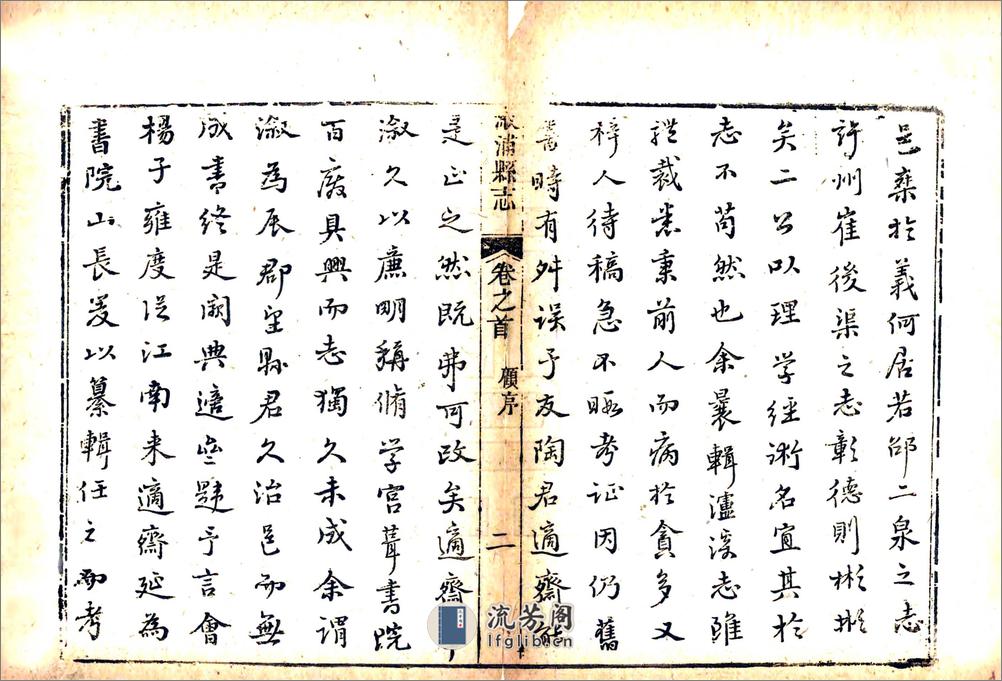 邑棄於義何居若邵二泉之志
許州崔後渠之志彰德則彬彬
矣二公以理學經術名宜其於
志不苟然也余曩輯瀘溪志雖
體裁悉秉前人而病於貪多又
梓人待稿急不暇考证因仍舊
時有舛误予友陶君適齋能
是正之然既弗可改矣適齋
溆久以廉明稱脩学宫葺書院
百廢具興而志獨久未成余谓
溆為辰郡望縣君久治邑而無
成書終是闕典適齋韙予言會
楊子雍度從江南来適齋延為
書院山長爰以纂輯任之而考
浦縣志
卷之首
顧序
二
流芳阁
lfglib.com